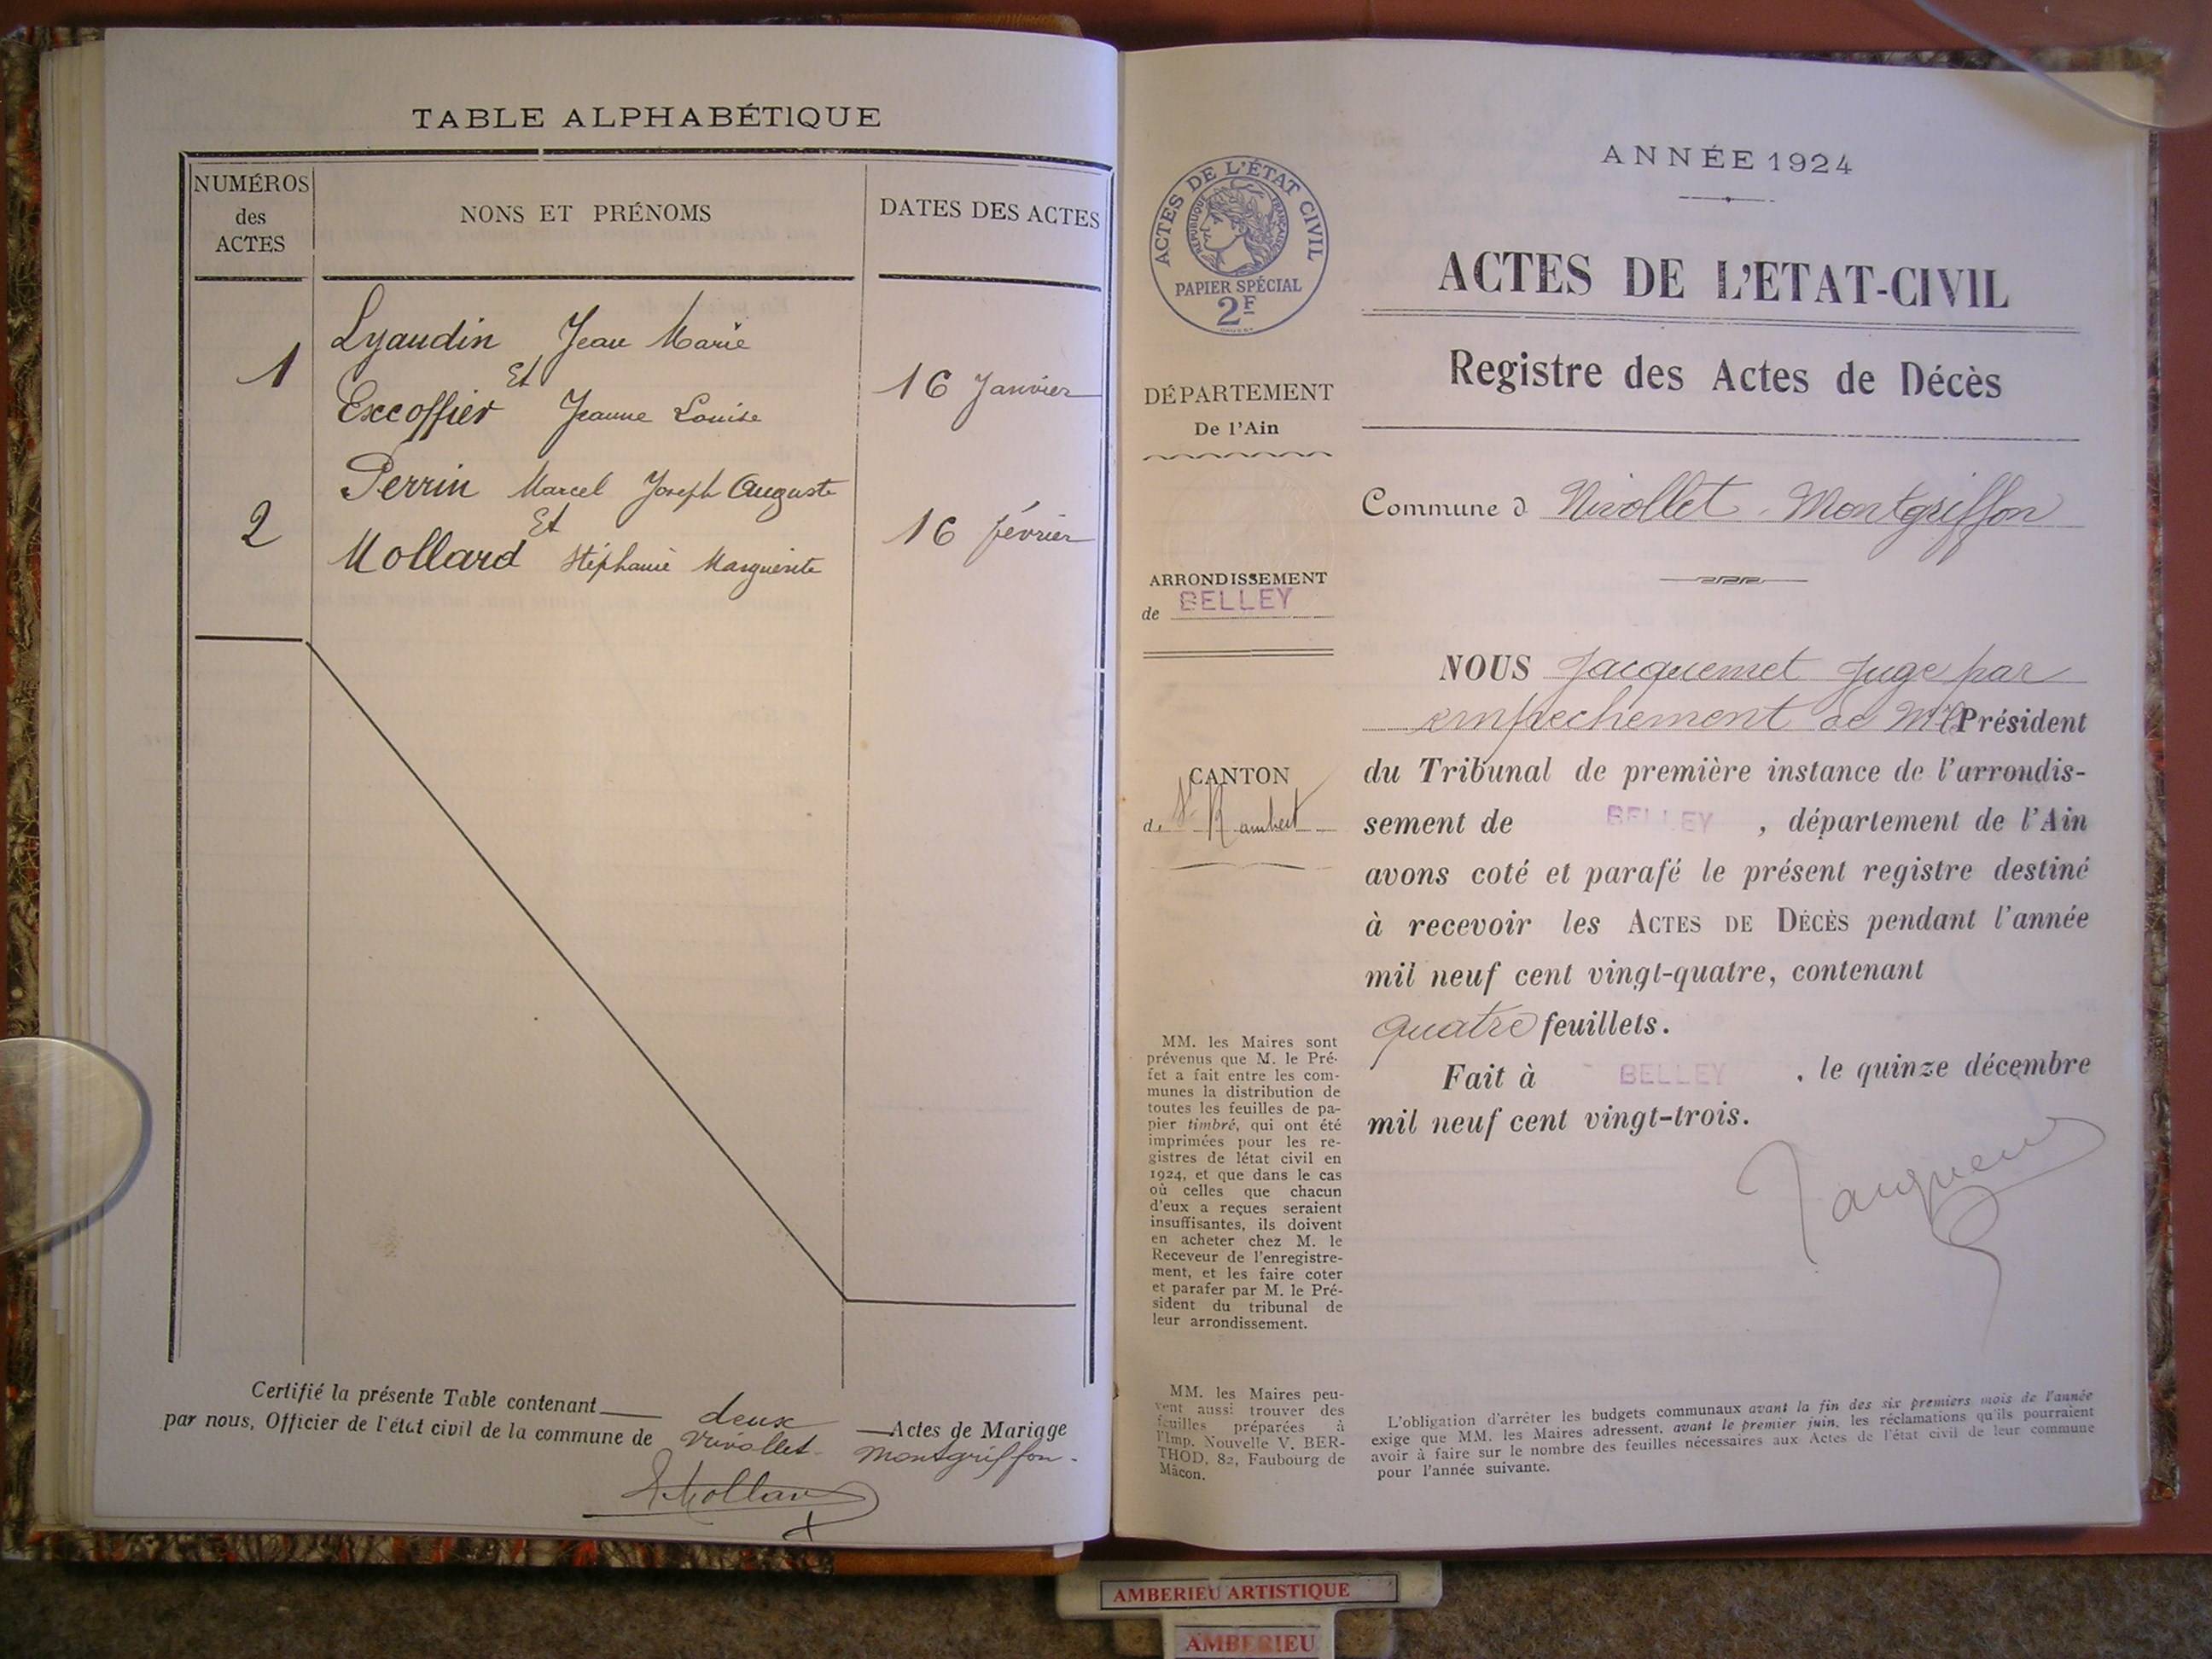 TABLE ALPHABÉTIQUE
NUMÉROS
des
ACTES
NONS ET PRÉNOMS
DATES DES ACTES
Lyaudin Jean Marie
1 Et 16 Janvier
Excoffier Jeanne Louise
Perrin Marcel Joseph Auguste
2 Et 16 février
Mollard Stéphanie Marguerite
Certifié la présente Table contenant deux Actes de Mariage
par nous, Officier de l'état civil de la commune de Nivollet-Montgriffon.
Mollard
ACTES DE L'ÉTAT CIVIL
RÉPUBLIQUE FRANÇAISE
PAPIER SPÉCIAL
2F
DÉPARTEMENT
De l'Ain
ARRONDISSEMENT
de BELLEY
CANTON
de St Rambert
MM. les Maires sont
prévenus que M. le Pré-
fet a fait entre les com-
munes la distribution de
toutes les feuilles de pa-
pier timbré, qui ont été
imprimées pour les re-
gistres de létat civil en
1924, et que dans le cas
où celles que chacun
d'eux a reçues seraient
insuffisantes, ils doivent
en acheter chez M. le
Receveur de l'enregistre-
ment, et les faire coter
et parafer par M. le Pré-
sident du tribunal de
leur arrondissement.
MM. les Maires peu-
vent aussi trouver des
feuilles préparées à
l'Imp. Nouvelle V. BER-
THOD, 82, Faubourg de
Mâcon.
ANNÉE 1924
ACTES DE L'ETAT-CIVIL
Registre des Actes de Décès
Commune d Nivollet-Montgriffon
NOUS Jacquemet Juge par
empechement de Mr le Président
du Tribunal de première instance de l'arrondis-
sement de BELLEY, département de l'Ain
avons coté et parafé le présent registre destiné
à recevoir les ACTES DE DÉCÈS pendant l'année
mil neuf cent vingt-quatre, contenant
quatre feuillets.
Fait à BELLEY, le quinze décembre
mil neuf cent vingt-trois.
L'obligation d'arrêter les budgets communaux avant la fin des six premiers mois de l'année
exige que MM. les Maires adressent, avant le premier juin, les réclamations qu'ils pourraient
avoir à faire sur le nombre des feuilles nécessaires aux Actes de l'état civil de leur commune
pour l'année suivante.
AMBERIEU ARTISTIQUE
AMBERIEU